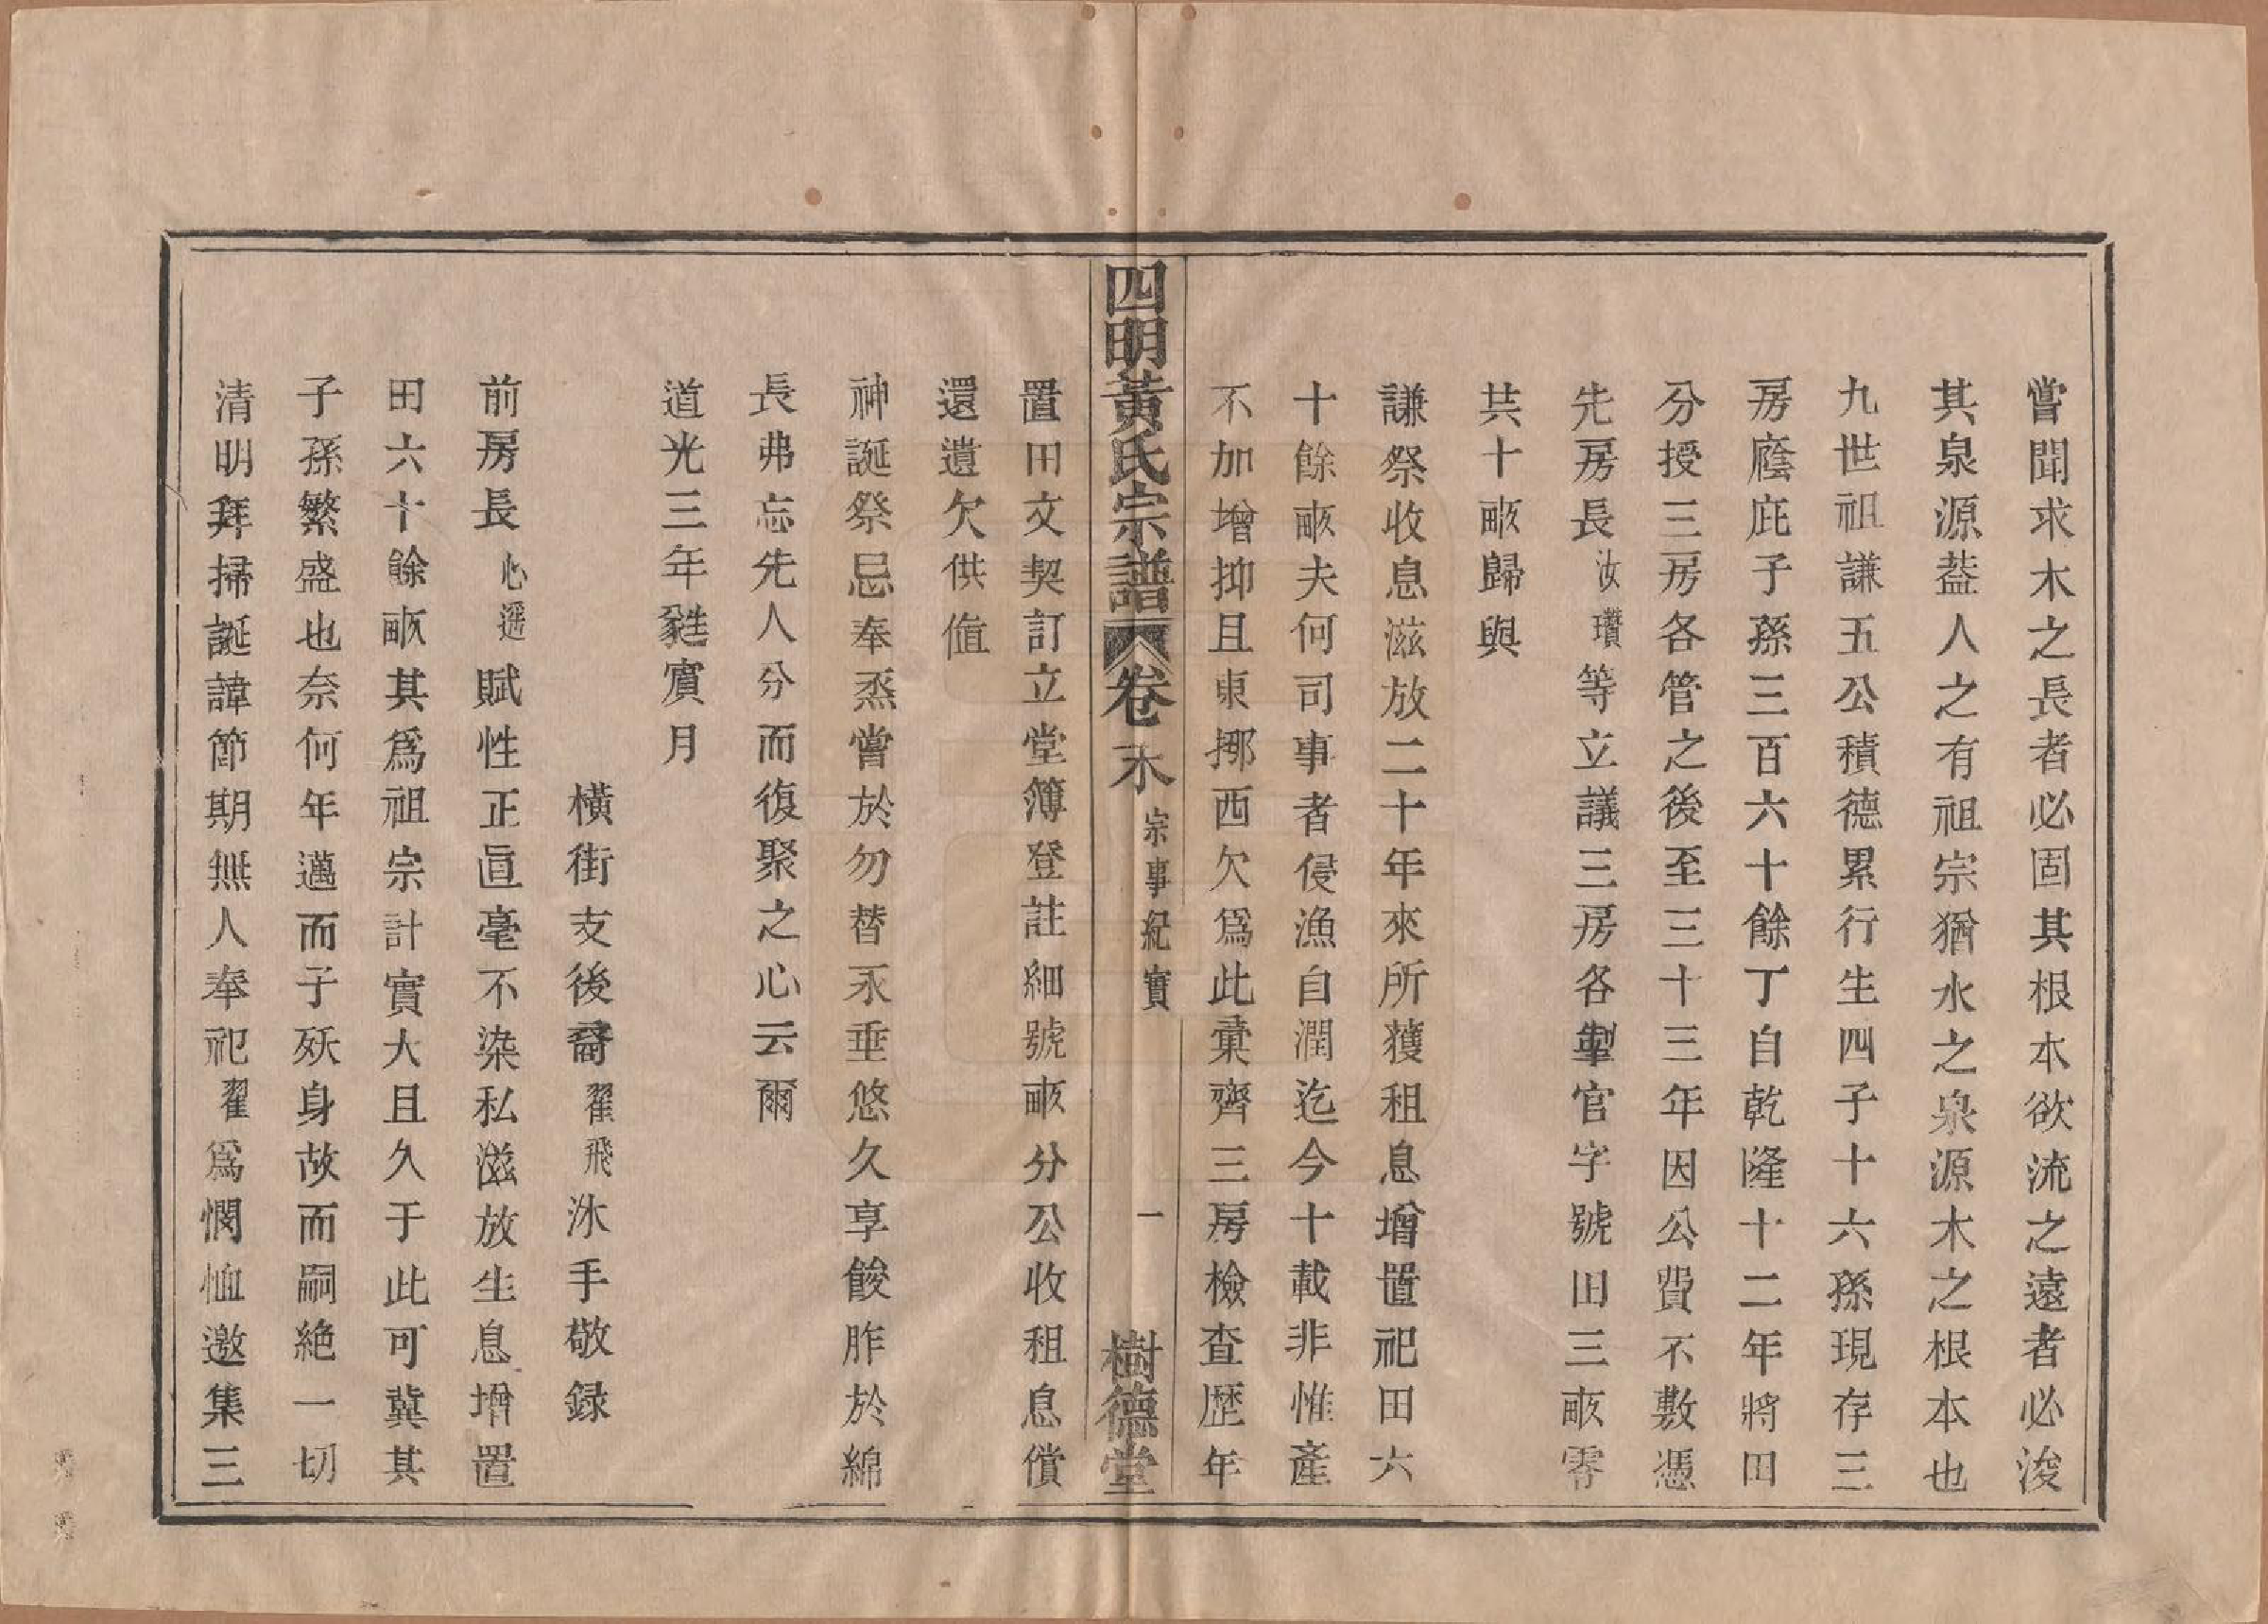 嘗聞求木之長者必固其根本欲流之遠者必浚
其泉源葢人之有祖宗猶水之泉源木之根本也
九世祖謙五公積德累行生四子十六孫現存三
房廕庇子孫三百六十餘丁自乾隆十二年將田
分授三房各管之後至三十三年因公費不敷憑
先房長汝瓚等立議三房各掣官字號田三畝零
共十畝歸與
謙祭收息滋放二十年來所獲租息增置祀田六
十餘畝夫何司事者侵漁自潤迄今十載非惟產
不加增抑且東挪西欠爲此彙齊三房檢查歷年
四明黃氏宗譜
卷末
宗事紀實
一
樹德堂
置田文契訂立堂簿登註細號畝分公收租息償
還遺欠供值
神誕祭忌奉烝嘗於勿替永垂悠久享餕胙於綿
長弗忘先人分而復聚之心云爾
道光三年蕤賔月
橫街支後裔翟飛沐手敬録
前房長心遥賦性正直毫不染私滋放生息增置
田六十餘畝其爲祖宗計實大且久于此可冀其
子孫繁盛也奈何年邁而子殀身故而嗣絶一切
清明拜掃誕諱節期無人奉祀翟爲憫恤邀集三